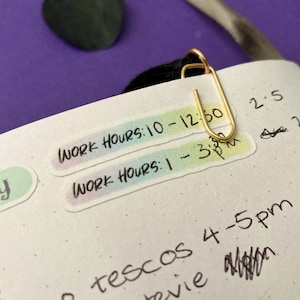 WORK HOURS: 10 - 12:30
2:5
WORK HOURS: 1 - 3pm
y
tescos 4-5pm